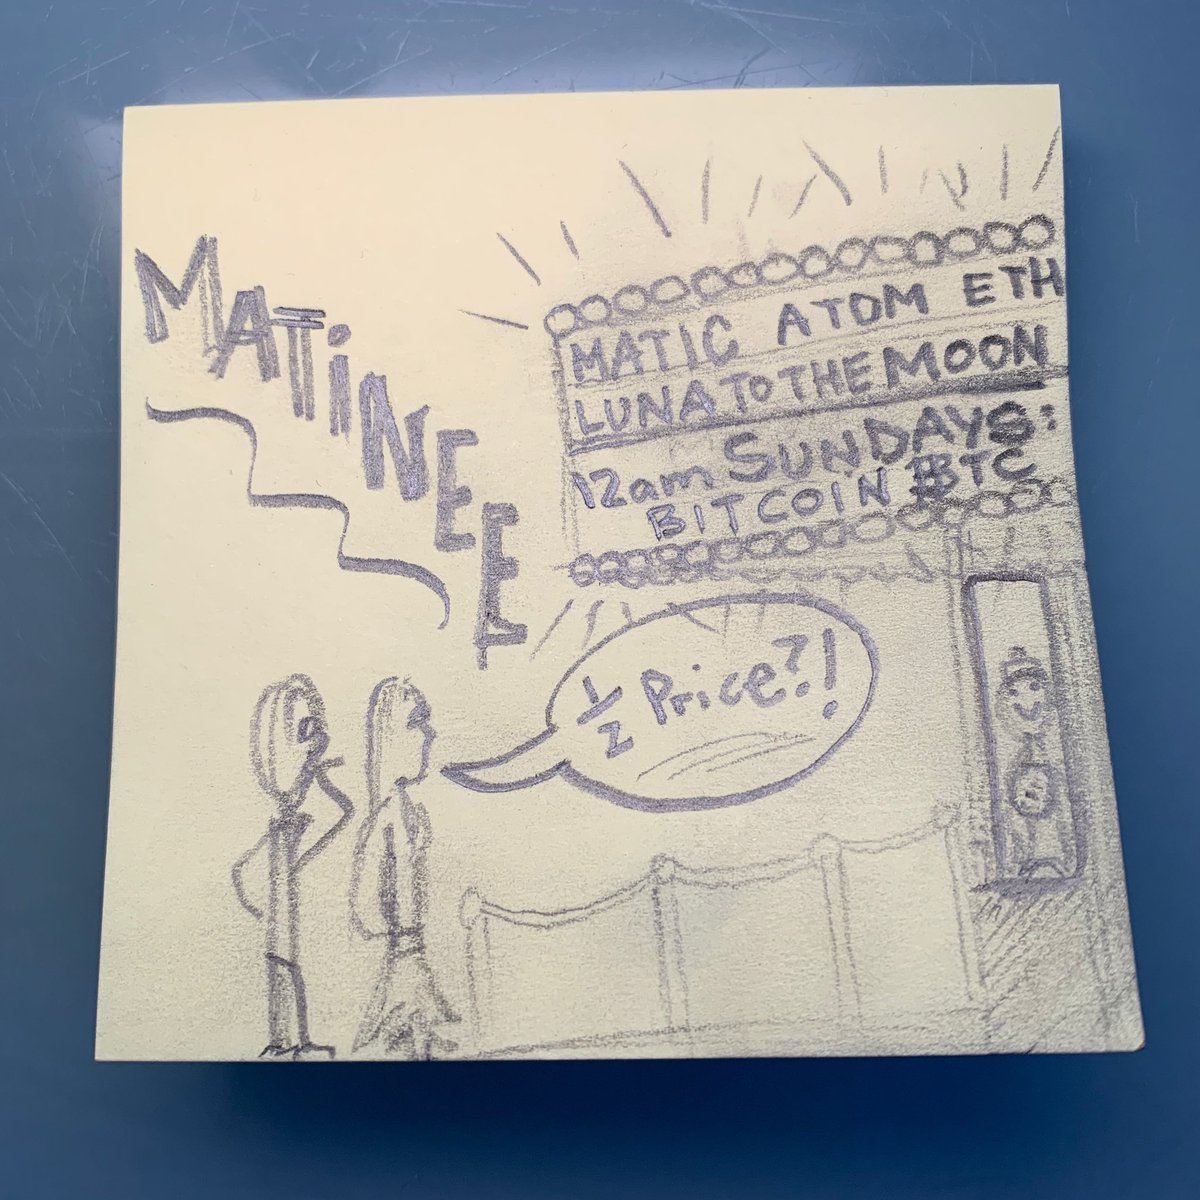 MATiNEE
MATIC ATOM ETH
LUNA TO THE MOON
12am SUNDAYS:
BITCOIN ₿TC
1/2 Price?!